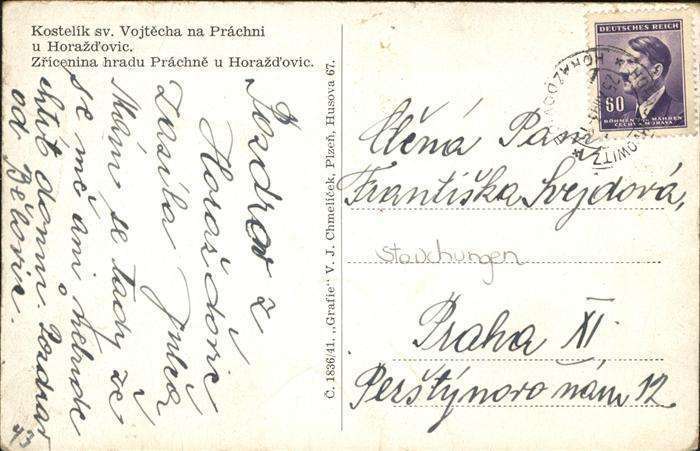 Kostelík sv. Vojtěcha na Práchni
u Horažďovic.
Zřícenina hradu Práchně u Horažďovic.
Pozdrav z
Horaždovic
Zasíka
Mám se tady že
se mě ani nebude
chtít domu. Pozdrav
od
43
Č. 1836/41. „Grafie" V. J. Chmelíček, Plzeň, Husova 67.
DEUTSCHES REICH
60
BÖHMEN UND MÄHREN
ČECHY A MORAVA
Ctěná Paní
Františka Svejdová,
Stauchungen
Praha XI
Perštýnovo nám 12